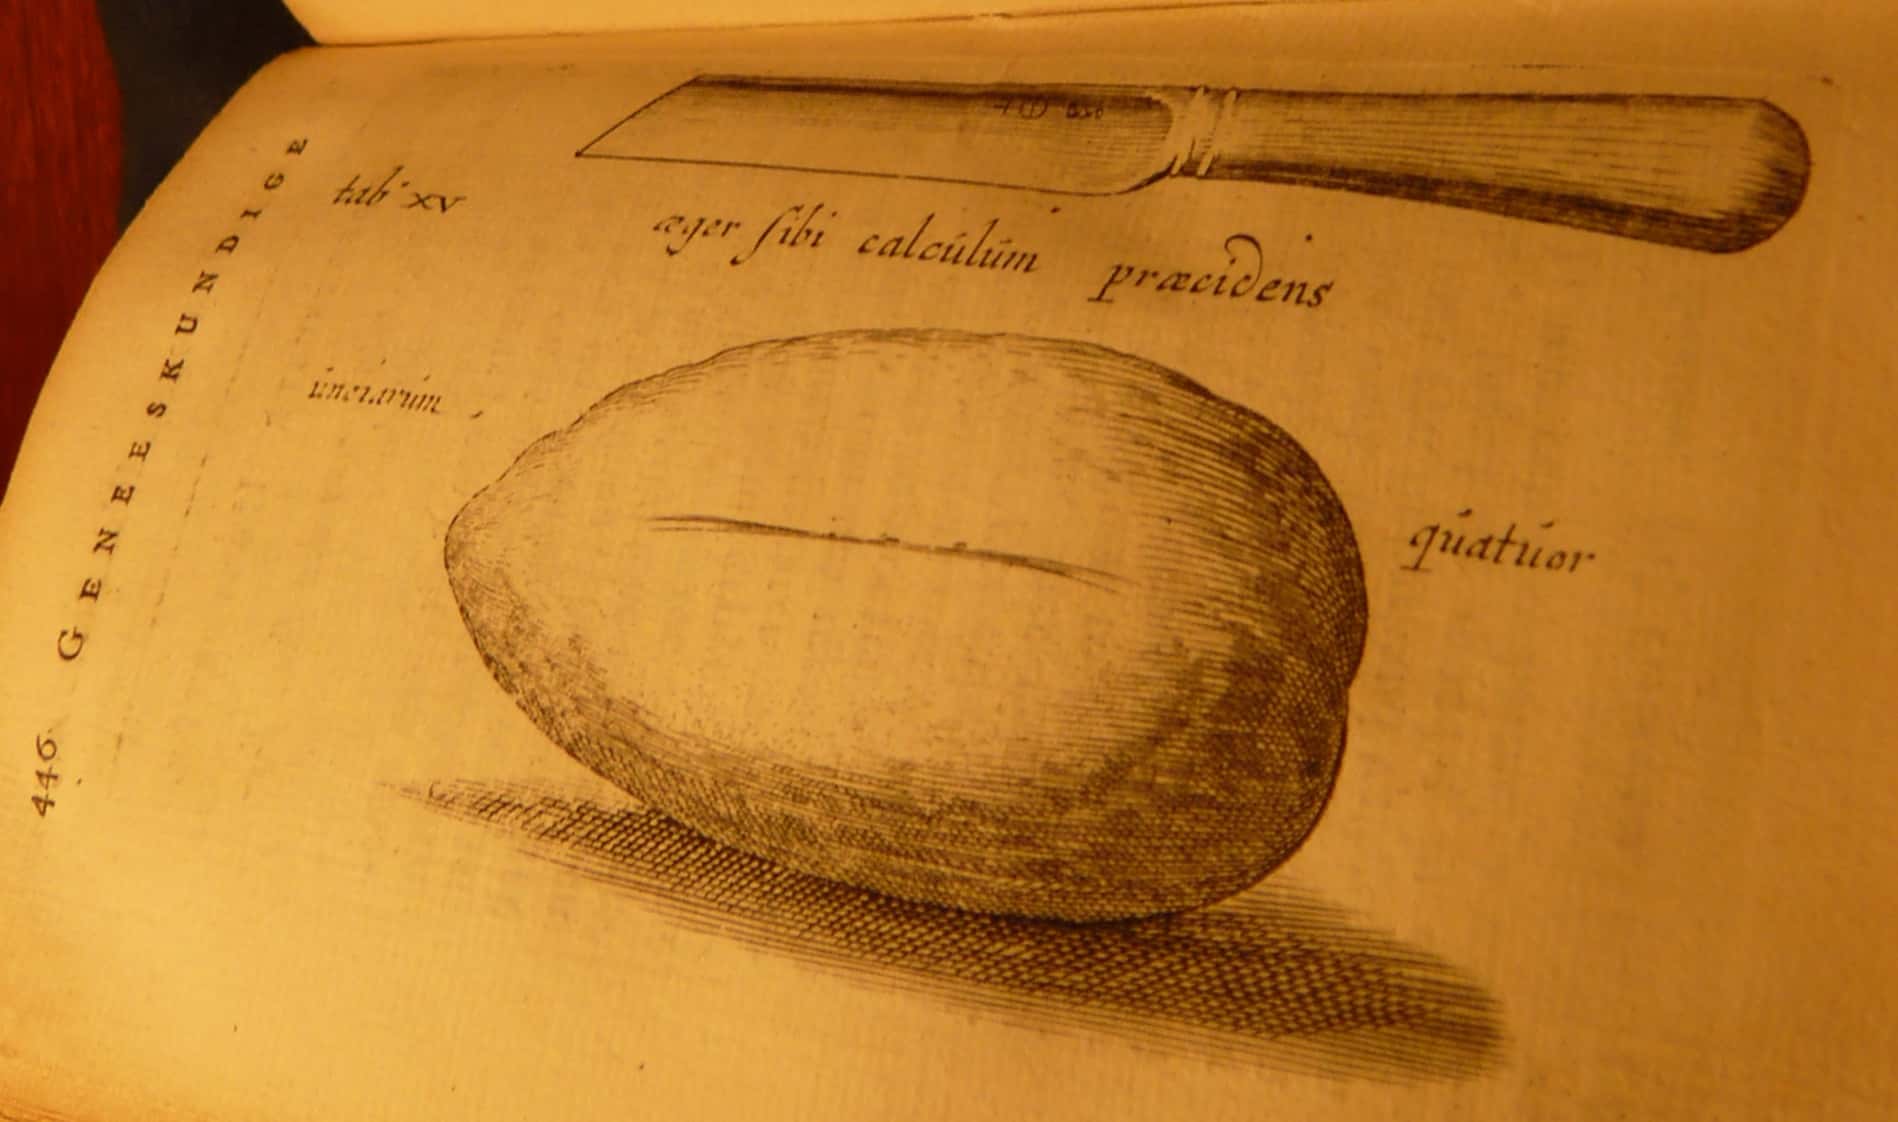 446 GENEESKUNDIGE
tab XV
æger sibi calcúlúm præcidens
únciarúm
qúatúor